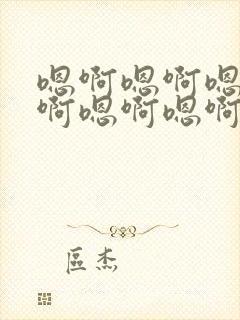 嗯啊嗯啊嗯
啊嗯啊嗯啊
區杰